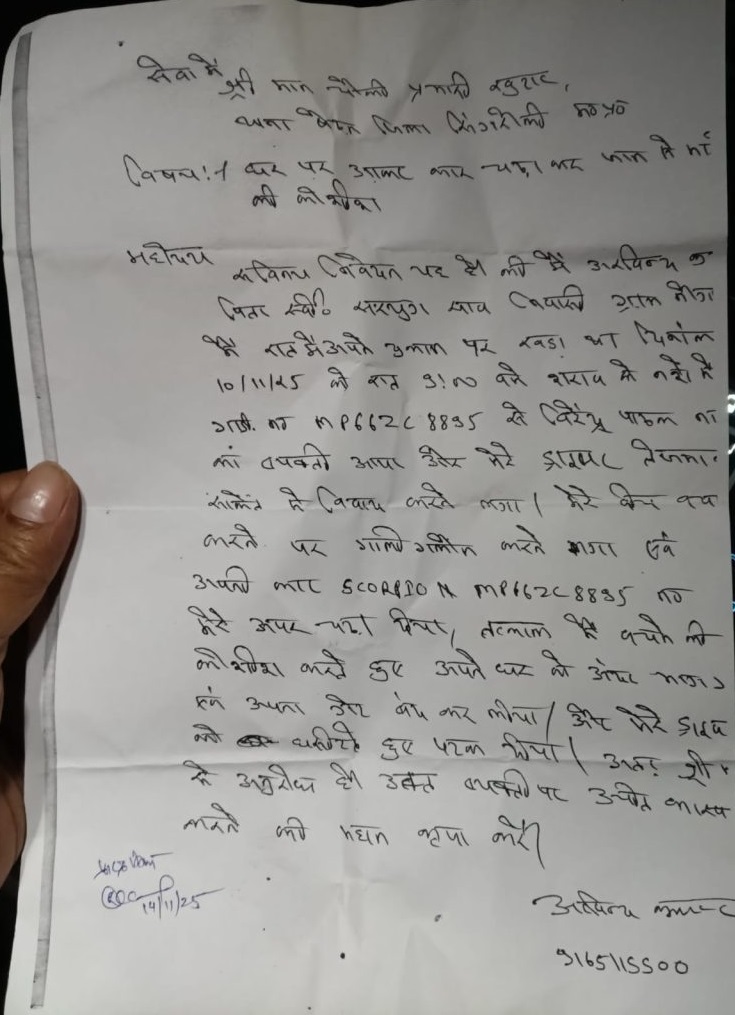 सेवा में
श्री मान चौकी प्रभारी
थाना जिला सिंगरौली म० प्र०
विषय:- घर पर आकर कार चढ़ा कर जान से मां
की कोशीश।
महोदय
सविनय निवेदन यह है। की मैं अरविन्द क
पिता स्व० साव निवासी ग्राम
मैं रात में अपने पर खड़ा था दिनांक
10/11/25 को रात 9:00 बजे शराब के नशे में
गाड़ी नं MP66ZC8895 से विरेन्द्र ना
का व्यक्ती आया और मेरे ड्राइवर
साकेत से विवाद करने लगा। मेरे बीच बच
करने पर गाली गलौज करने लगा एवं
अपनी कार SCORPIO N MP66ZC8895 को
मेरे ऊपर चढ़ा दिया, तत्काल मैं बचने की
कोशीश करते हुए अपने घर के अंदर भागा
एवं अपना गेट बंद कर लीया। और मेरे ड्राइव
को घसीटते हुए पटक दीया। अतः श्री
से अनुरोध है। उक्त व्यक्ती पर उचीत कारव
करने की महान कृपा करें।
14/11/25
अरविन्द कुमार
9165115500